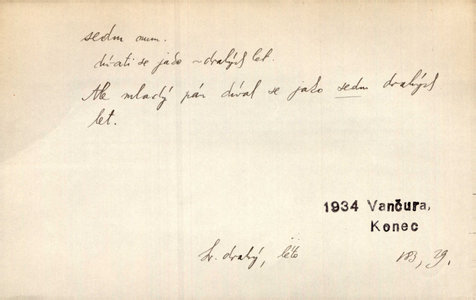 sedm num.
dívati se jako ~ drahých let.
Ale mladý pár díval se jako sedm drahých
let.
1934 Vančura,
Konec
sr. drahý, léto 183, 29.